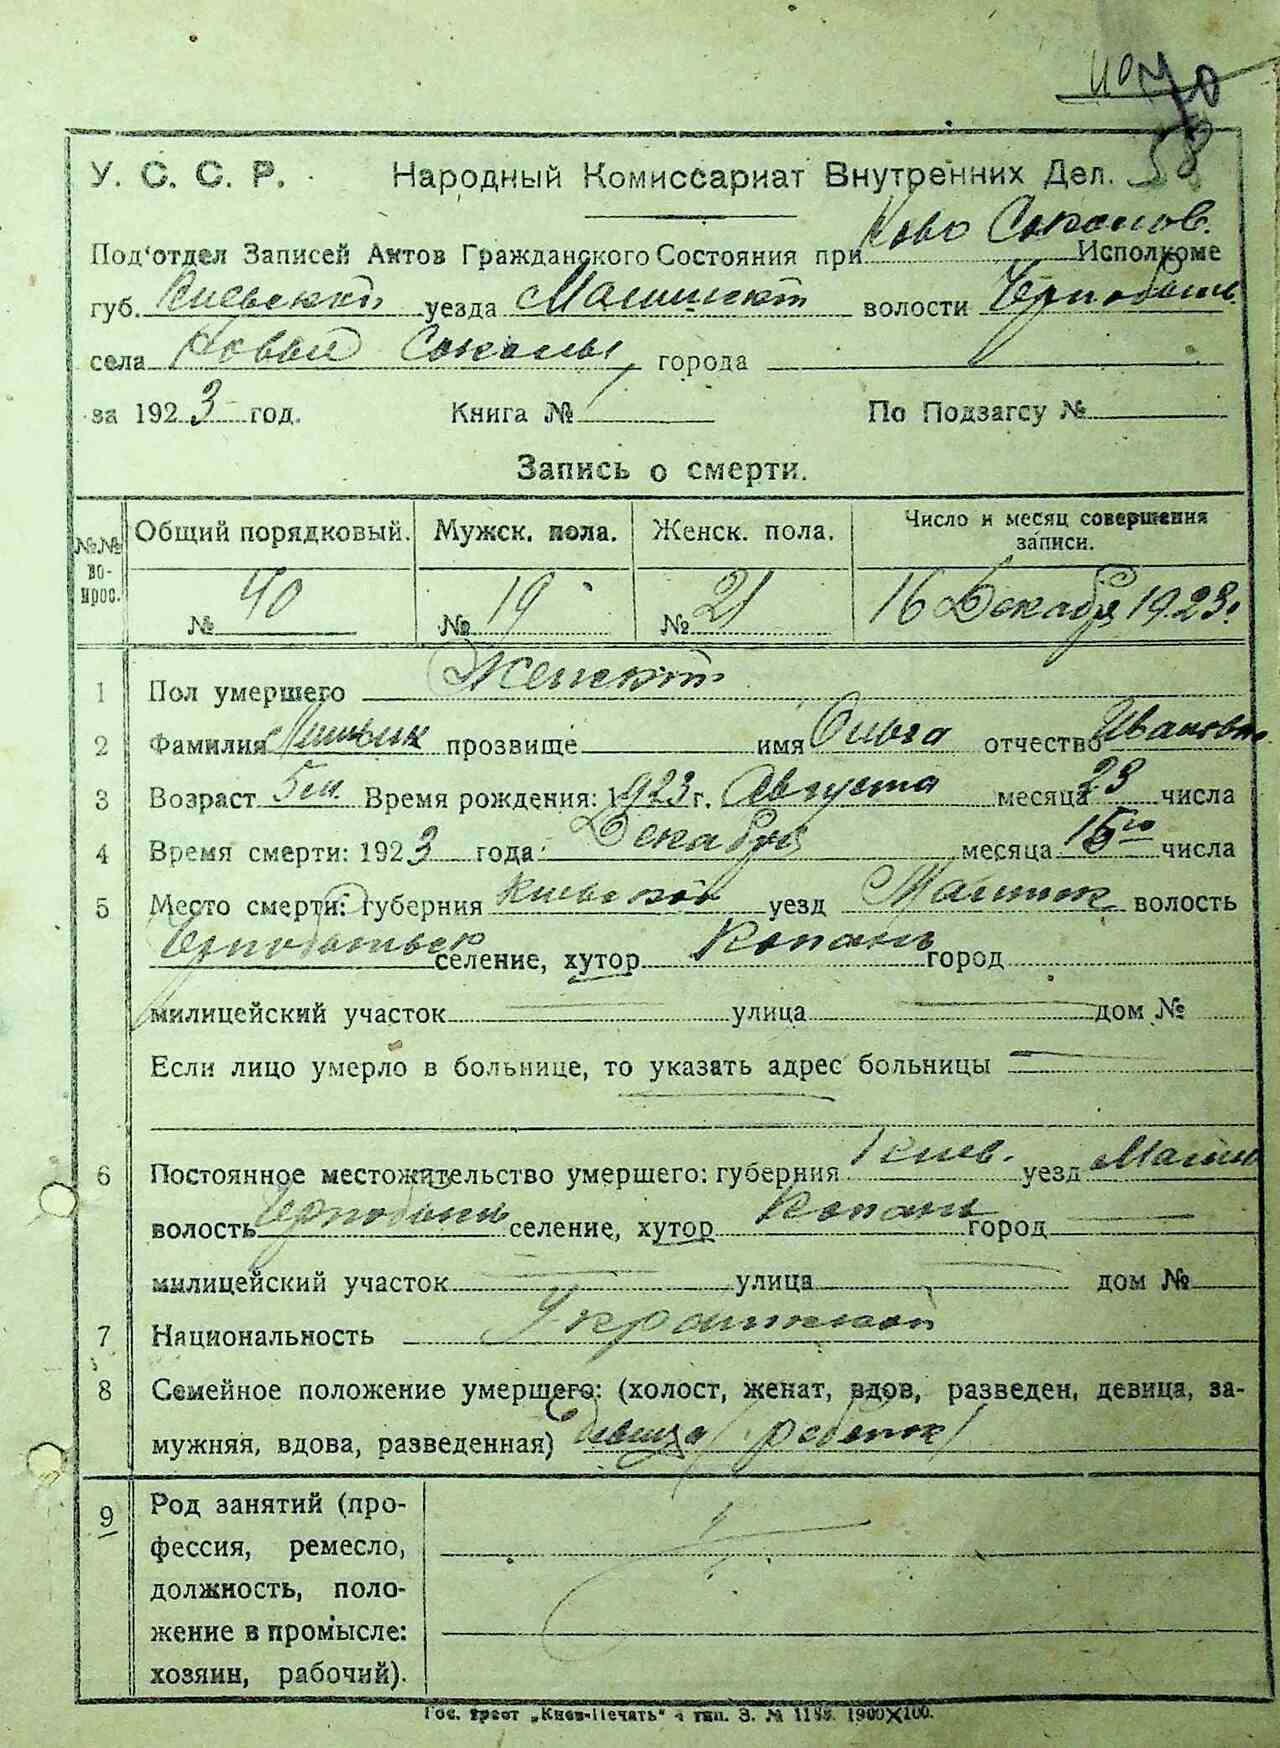 70
58
У. С. С. Р. Народный Комиссариат Внутренних Дел.
Под'отдел Записей Актов Гражданского Состояния при Ново Соколов. Исполкоме
губ. Киевской уезда волости
села Новый Соколы города
за 1923 год. Книга № По Подзагсу №
Запись о смерти.
№№ вопрос. Общий порядковый. Мужск. пола. Женск. пола. Число и месяц совершения записи.
№ 40 № 19 № 21 16 Декабря 1923.
1 Пол умершего Женский
2 Фамилия прозвище имя Ольга отчество Ивановн
3 Возраст 5 м. Время рождения: 1923 г. Августа месяца 23 числа
4 Время смерти: 1923 года: Декабря месяца 15го числа
5 Место смерти: губерния Киевской уезд волость
селение, хутор Копань город
милицейский участок улица дом №
Если лицо умерло в больнице, то указать адрес больницы
6 Постоянное местожительство умершего: губерния Киев. уезд
волость селение, хутор Копань город
милицейский участок улица дом №
7 Национальность
8 Семейное положение умершего: (холост, женат, вдов, разведен, девица, за-
мужняя, вдова, разведенная) девица /ребенок/
9 Род занятий (про-
фессия, ремесло,
должность, поло-
жение в промысле:
хозяин, рабочий).
Гос. трест „Киев-Печать" 4 тип. З. № 1900×100.